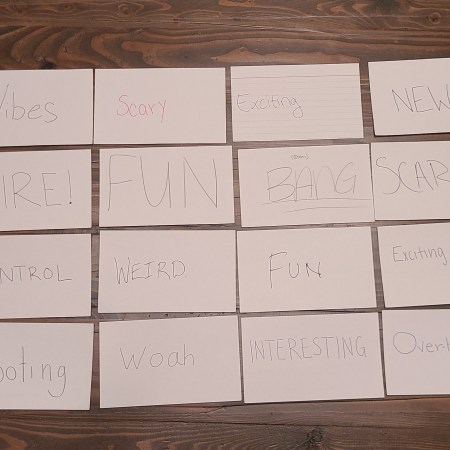 Vibes
Scary
Exciting
NEW
IRE!
FUN
BANG
SCAR
NTROL
WEIRD
FUN
Exciting
ooting
Woah
INTERESTING
Over